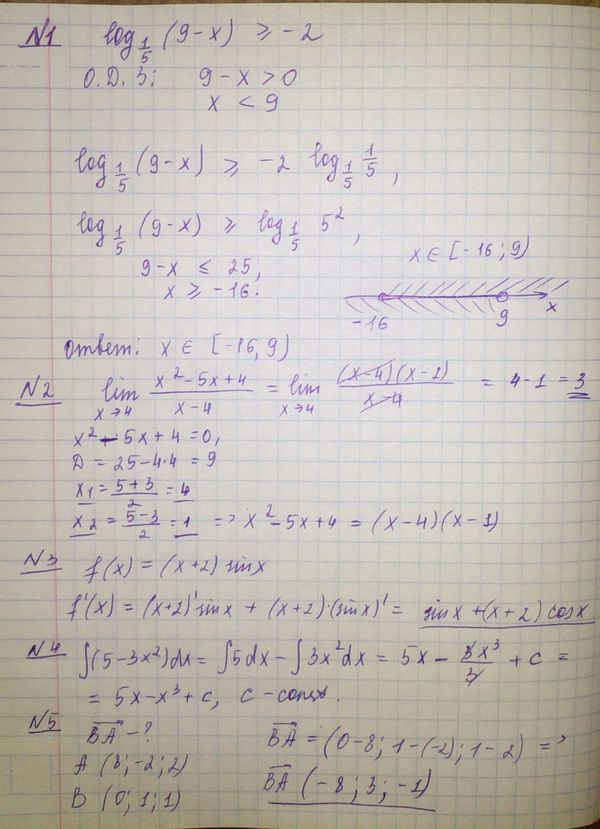 N1 log_{1/5} (9-x) ≥ -2
О.Д.З: 9-x > 0
x < 9
log_{1/5} (9-x) ≥ -2 log_{1/5} 1/5,
log_{1/5} (9-x) ≥ log_{1/5} 5²,
9-x ≤ 25,
x ≥ -16.
x ∈ [-16; 9)
-16 9 x
ответ: x ∈ [-16, 9)
N2 lim_{x→4} (x²-5x+4)/(x-4) = lim_{x→4} ((x-4)(x-1))/(x-4) = 4-1 = 3
x²-5x+4=0,
D = 25-4·4 = 9
x₁ = (5+3)/2 = 4
x₂ = (5-3)/2 = 1 => x²-5x+4 = (x-4)(x-1)
N3 f(x) = (x+2) sinx
f'(x) = (x+2)' sinx + (x+2)·(sinx)' = sinx + (x+2) cosx
N4 ∫(5-3x²)dx = ∫5dx - ∫3x²dx = 5x - 3x³/3 + c =
= 5x-x³+c, c-const.
N5 BA - ?
A (8; -2; 2)
B (0; 1; 1)
BA = (0-8; 1-(-2); 1-2) =>
BA (-8; 3; -1)